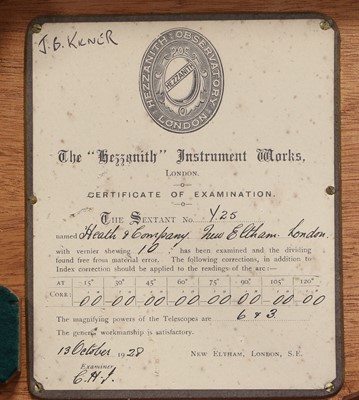 J.B. KIENER
HEZZANITH OBSERVATORY
HEZZANITH
LONDON
The "Hezzanith" Instrument Works,
LONDON.
CERTIFICATE OF EXAMINATION.
THE SEXTANT No. Y25
named Heath & Company. New Eltham. London.
with vernier shewing 10" has been examined and the dividing
found free from material error. The following corrections, in addition to
Index correction should be applied to the readings of the arc:—
AT 15° 30° 45° 60° 75° 90° 105° 120°
CORR: 00 00 00 00 00 00 00 00
The magnifying powers of the Telescopes are 6 & 3.
The general workmanship is satisfactory.
13 October 1928 NEW ELTHAM, LONDON, S.E.
Examiner
C.H.J.